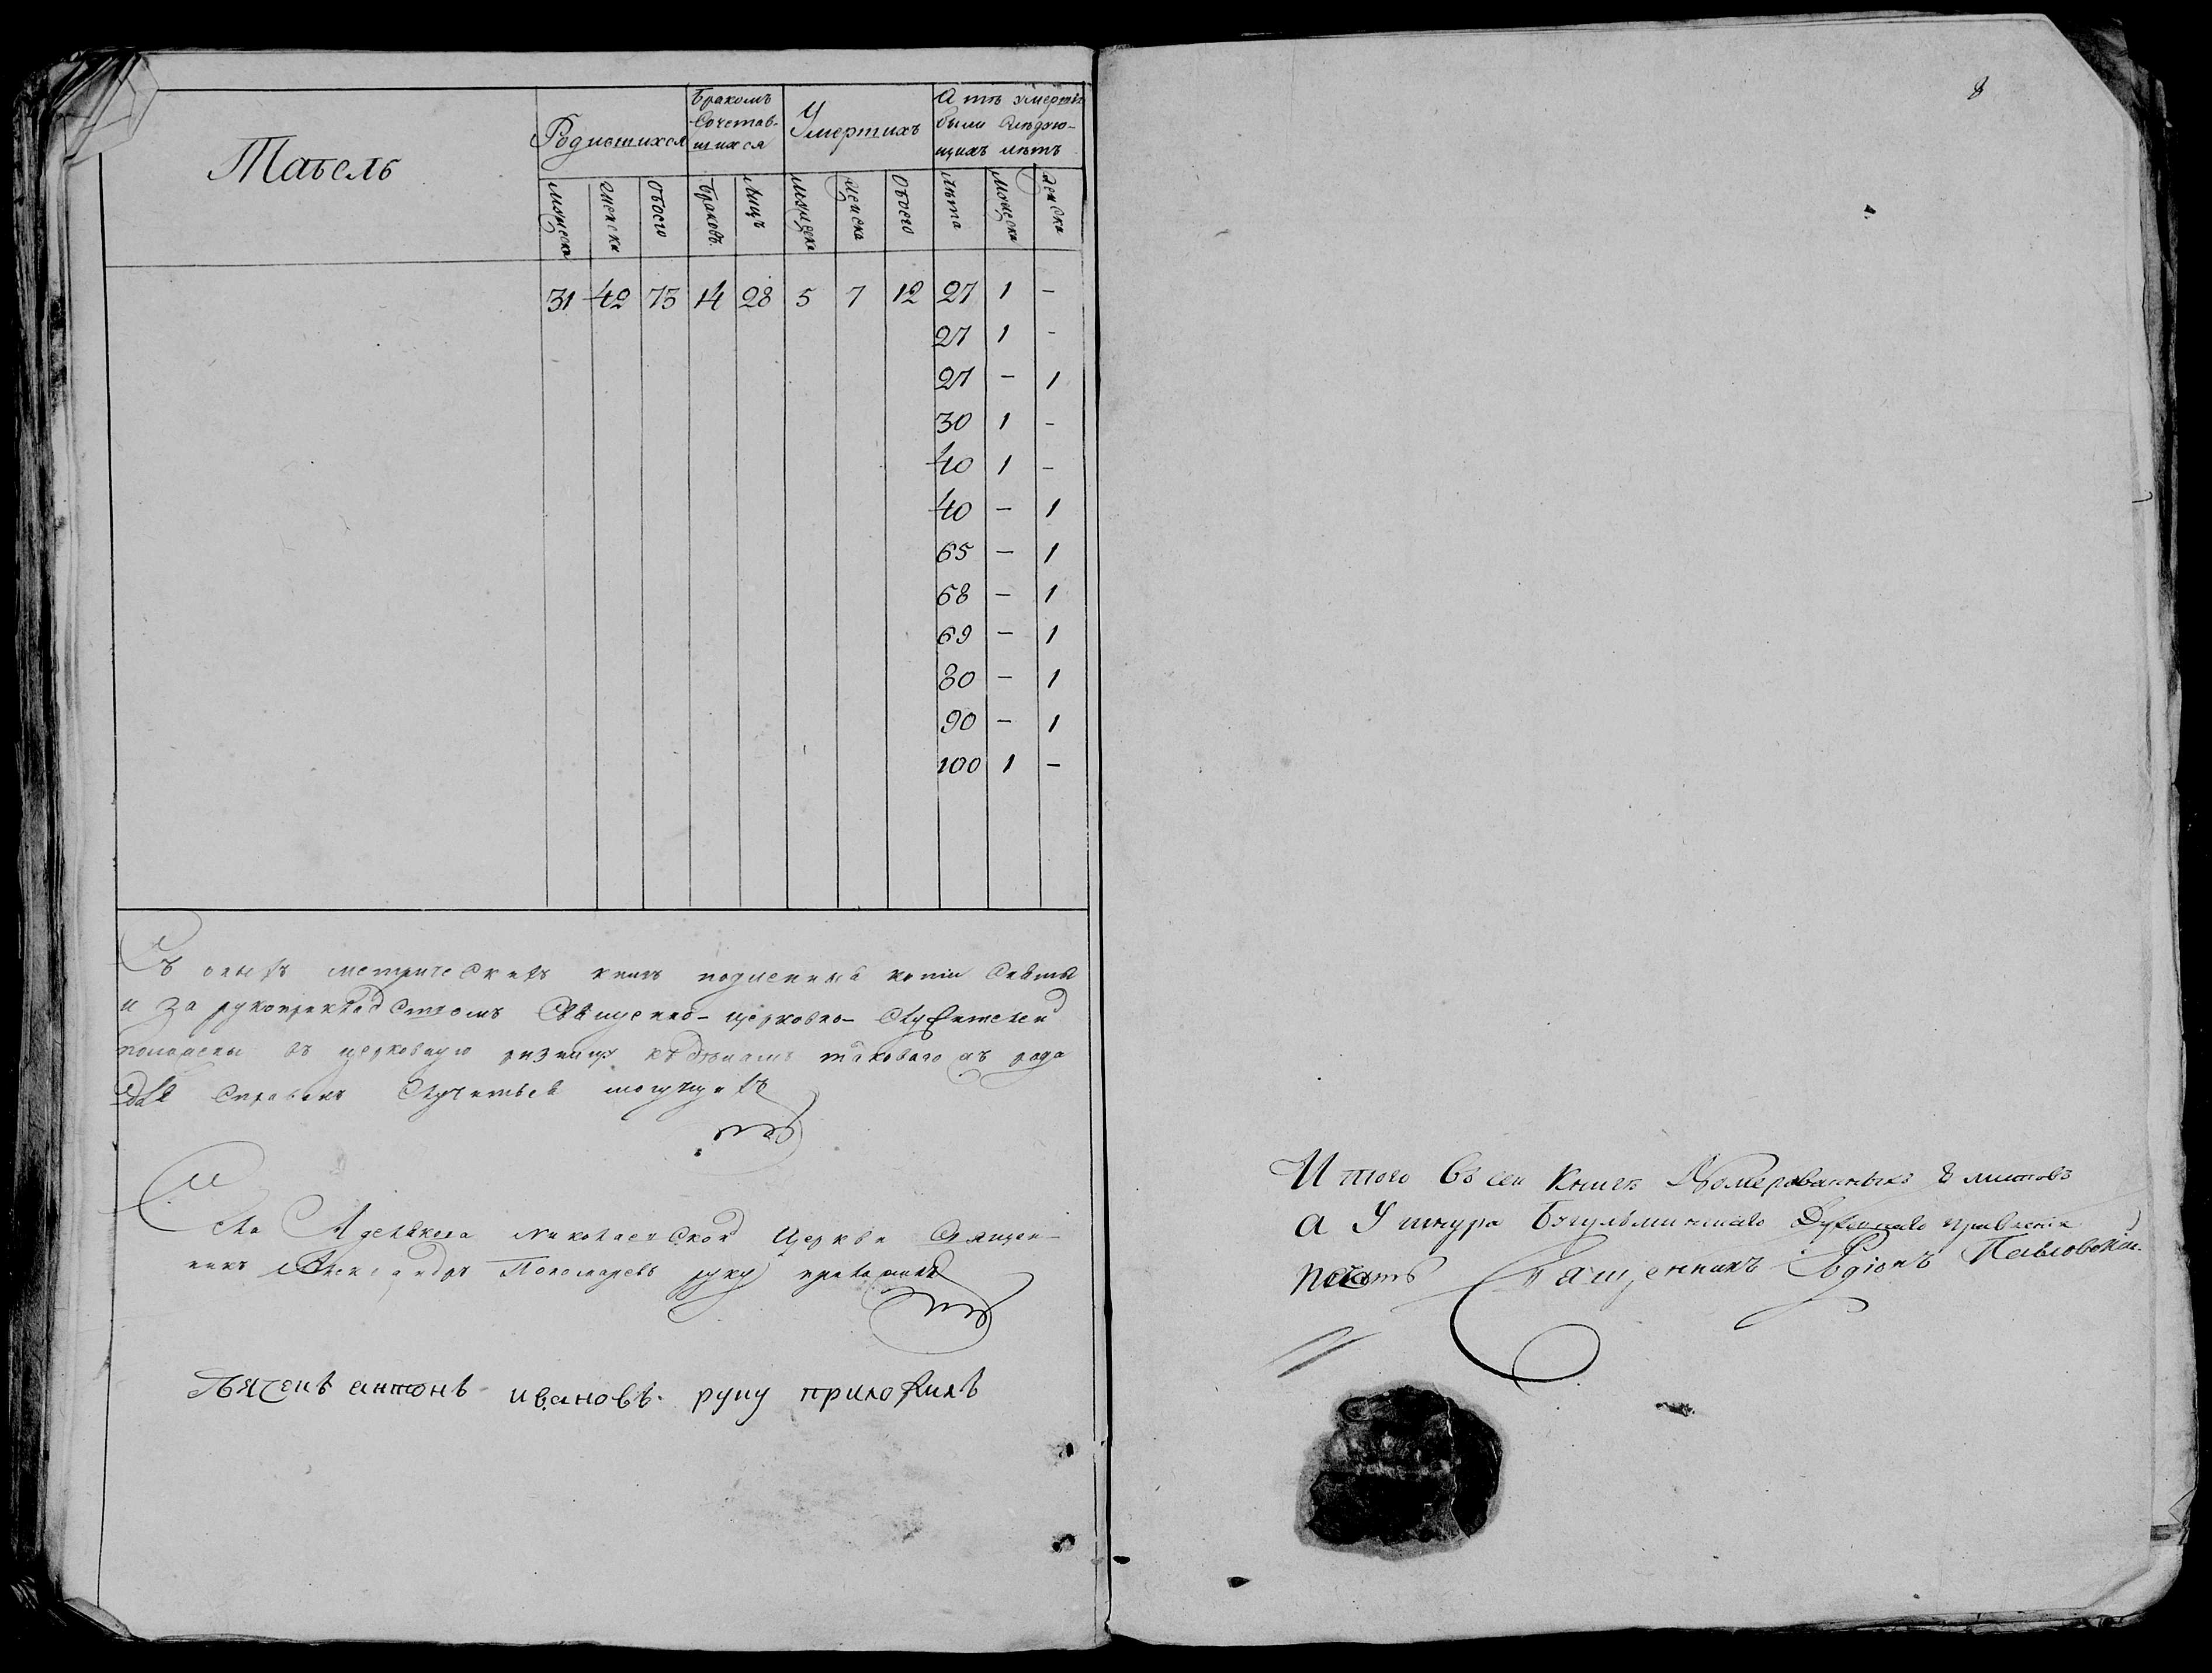 Табель
Родившихся
Бракомъ
Сочетав-
шихся
Умертихъ
А тѣ умертіи
были слѣдую-
щихъ лѣтъ
мужеска
женска
обоего
браковъ
лицъ
мужеска
женска
обоего
лѣта
мужеска
женска
31 42 73 14 28 5 7 12 27 1 -
27 1 -
27 - 1
30 1 -
40 1 -
40 - 1
65 - 1
68 - 1
69 - 1
80 - 1
90 - 1
100 1 -
Съ оныхъ метрическихъ книгъ подленныя копіи сняты
и за рукоприкладствомъ Священно-церковно-служителей
положены въ церковную ризницу таковаго рода
для справокъ
Села Николаевской Церкви Священ-
никъ Александръ Пономаревъ руку приложилъ
Дячекъ антонъ ивановъ руку приложилъ
8
Итого въ сей книгѣ номерованныхъ 8 листовъ
а У шнура Бугульминскаго Духовнаго правленія
печать Священникъ Родіонъ Павловскій